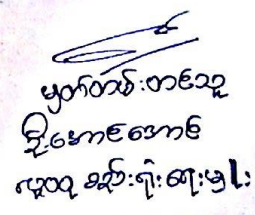 မှတ်တမ်းတင်သူ
ဦးအောင်အောင်
စည်းရုံးရေးမှူး